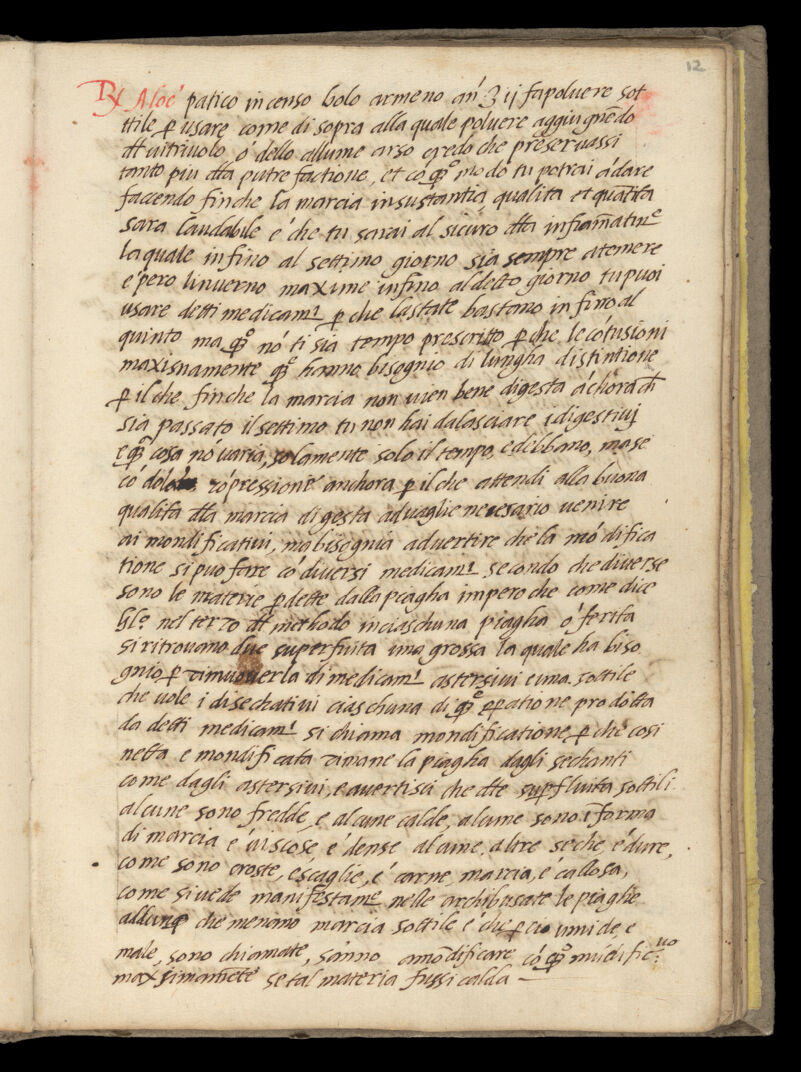 12
℞ Aloe patico incenso bolo armeno an ʒ ij fa poluere sot
ttile p usare come di sopra alla quale poluere aggiugnēdo
dl uitriuolo, o dello allume arso credo che preseruassi
tanto piu dlla putrefactione, et cō qsto modo tu potrai ādare
faccendo finche la marcia in sustantia qualita et quātita
sara laudabile e che tu sarai al sicuro dlla infiāmatine
la quale infino al settimo giorno sia sempre a temere
e pero linuerno maxime infino al detto giorno tu puoi
usare detti medicamti p che lastate bastano infino al
quinto ma qsto nō ti sia tempo prescritto p che le cōtusioni
maxisnamente qste hanno bisognio di lungha distintione
p il che finche la marcia non uien bene digesta āchora ch
sia passato il settimo tu non hai da lasciare i digestiuj
e qsta cosa nō uaria, solamente solo il tempo, e debbano, ma se
cō dolore cōpressione anchora p il che attendi alla buona
qualita dlla marcia digesta aduaglie necesario uenire
ai mondificatiui, ma bisognia aduertire che la mōdifica
tione si puo fare cō diuersi medicamti secondo che diuerse
sono le materie pdette dalla piagha impero che come dice
nel terzo dl methodo in ciaschuna piagha o ferita
si ritrouano due superfuita una grossa la quale ha biso
gnio p rimuouerla di medicamti astersiui e una sottile
che uole i disechatiui ciaschuna di qste opatione prodotta
da detti medicamti si chiama mondificatione, p che cosi
netta e mondificata rimane la piagha dagli sechanti
come dagli astersiui, e auertisci che dtte supfluita sottili
alcune sono fredde, e alcune calde, alcune sono ī forma
di marcia e uiscose e dense alcune, altre seche e dure,
come sono croste, e scaglie, e carne, marcia, e callosa,
come si uede manifestame nelle archibusate le piaghe
allunq che menano marcia sottile e che p cio umide, e
male, sono chiamate, sanno a mōdificare cō qsto mūdificuo
maximamēte se tal materia fussi calda —